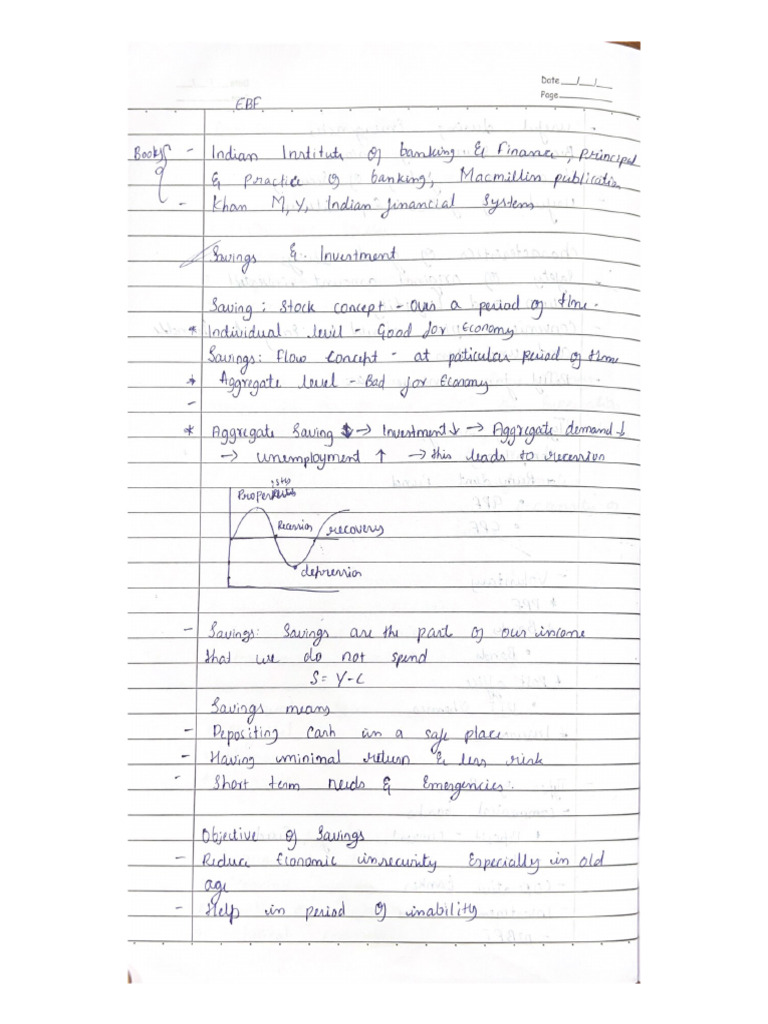 Date __/__/__
Page ______
EBF
Books - Indian Institute of banking & Finance, principal
& practice of banking, Macmillin publication
- Khan M, Y, Indian financial System
Savings & Investment
Saving: Stock concept - Over a period of time.
* Individual level - Good for Economy
Savings: Flow concept - at paticular period of time
* Aggregate level - Bad for Economy
-
* Aggregate Saving ↓ → Investment ↓ → Aggregate demand ↓
→ unemployment ↑ → this leads to recession
Recession
recovery
depression
- Savings: Savings are the part of our income
that we do not spend
S = Y-C
Savings means
- Depositing Cash in a safe place
- Having minimal return & less risk
- Short term needs & Emergencies.
Objective of Savings
- Reduce Economic insecurity Especially in old
age
- Help in period of inability